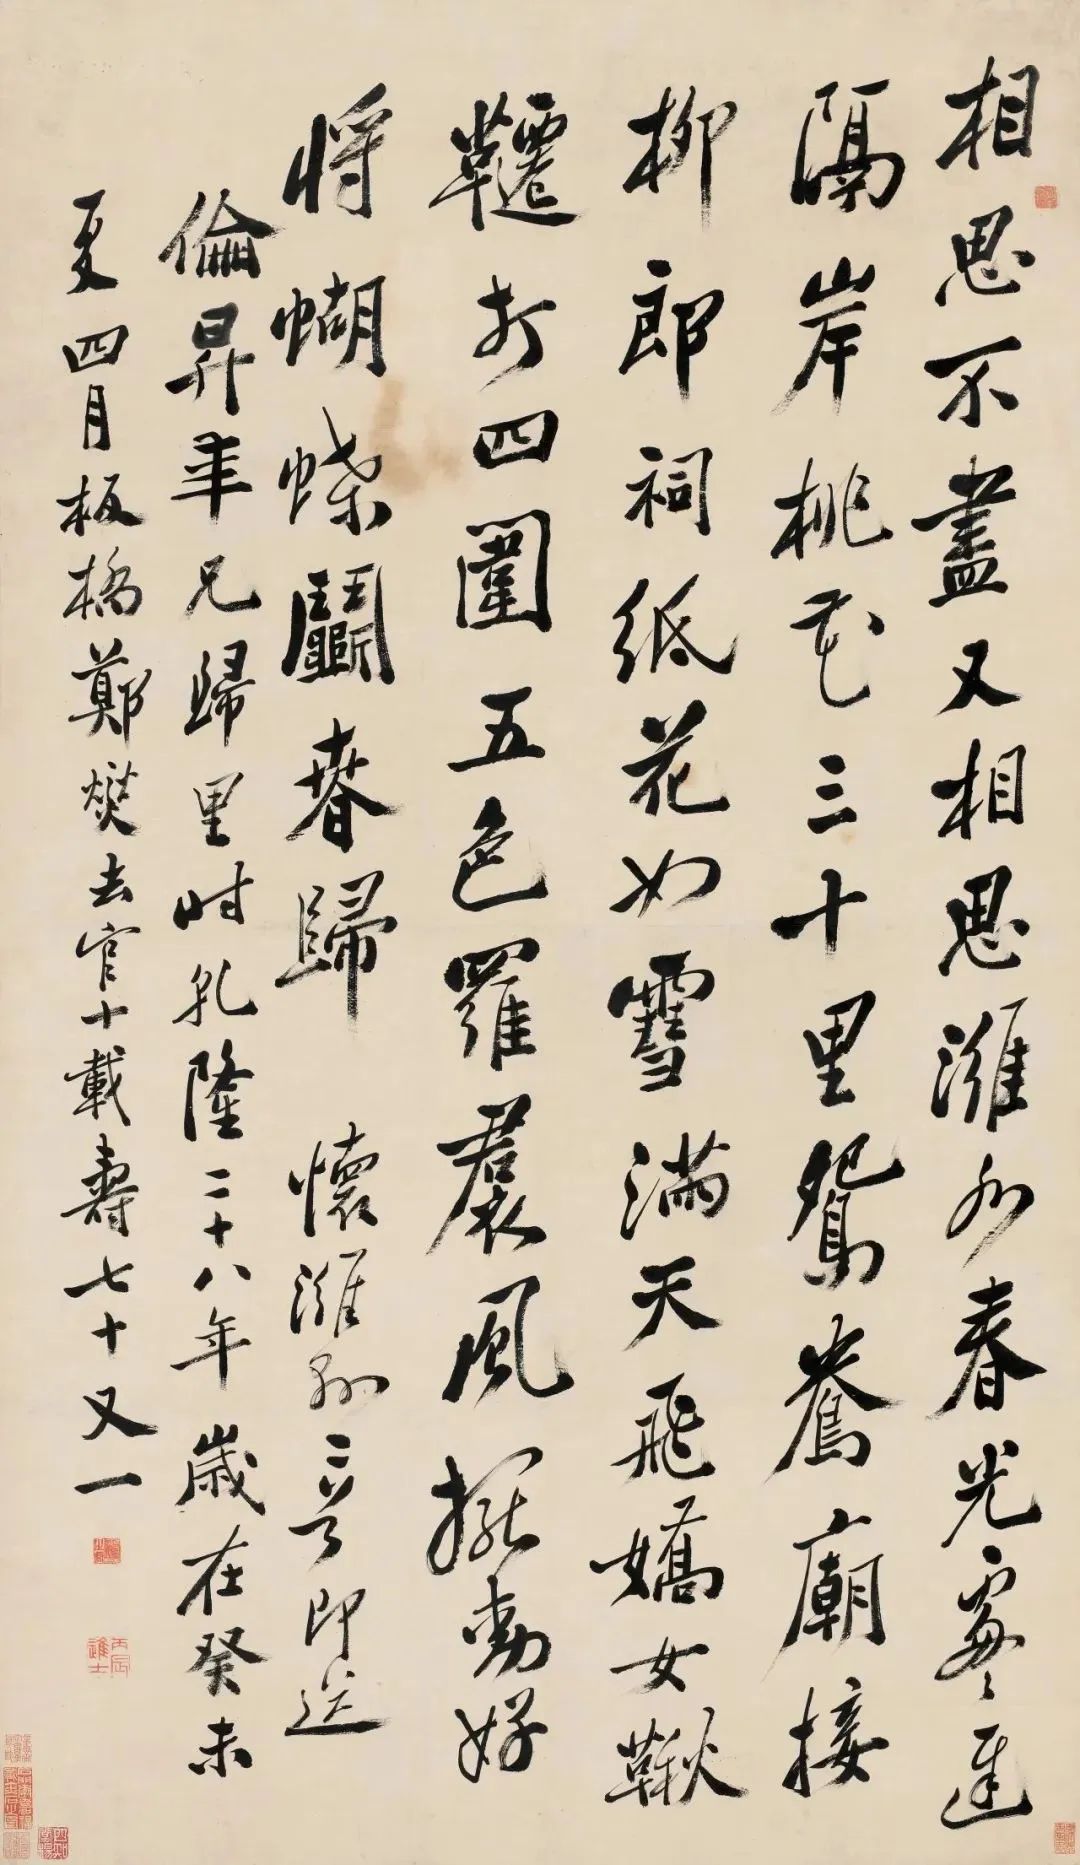 相思不盡又相思濰水春光處處遲
隔岸桃花三十里鴛鴦廟接
柳郎祠紙花如雪滿天飛嬌女鞦
韆打四圍五色羅裠風擺動好
將蝴蝶鬭春歸 懷濰縣二首即送
倫昇年兄歸里時乾隆二十八年歲在癸未
夏四月板橋鄭燮去官十載壽七十又一
丙辰進士